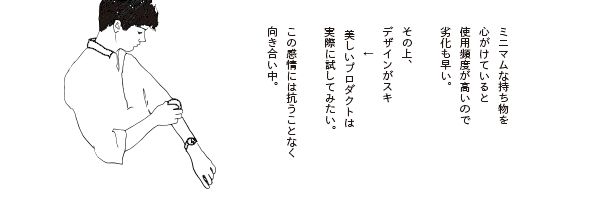 ミニマムな持ち物を
心がけていると
使用頻度が高いので
劣化も早い。
その上、
デザインがスキ
↓
美しいプロダクトは
実際に試してみたい。
この感情には抗うことなく
向き合い中。